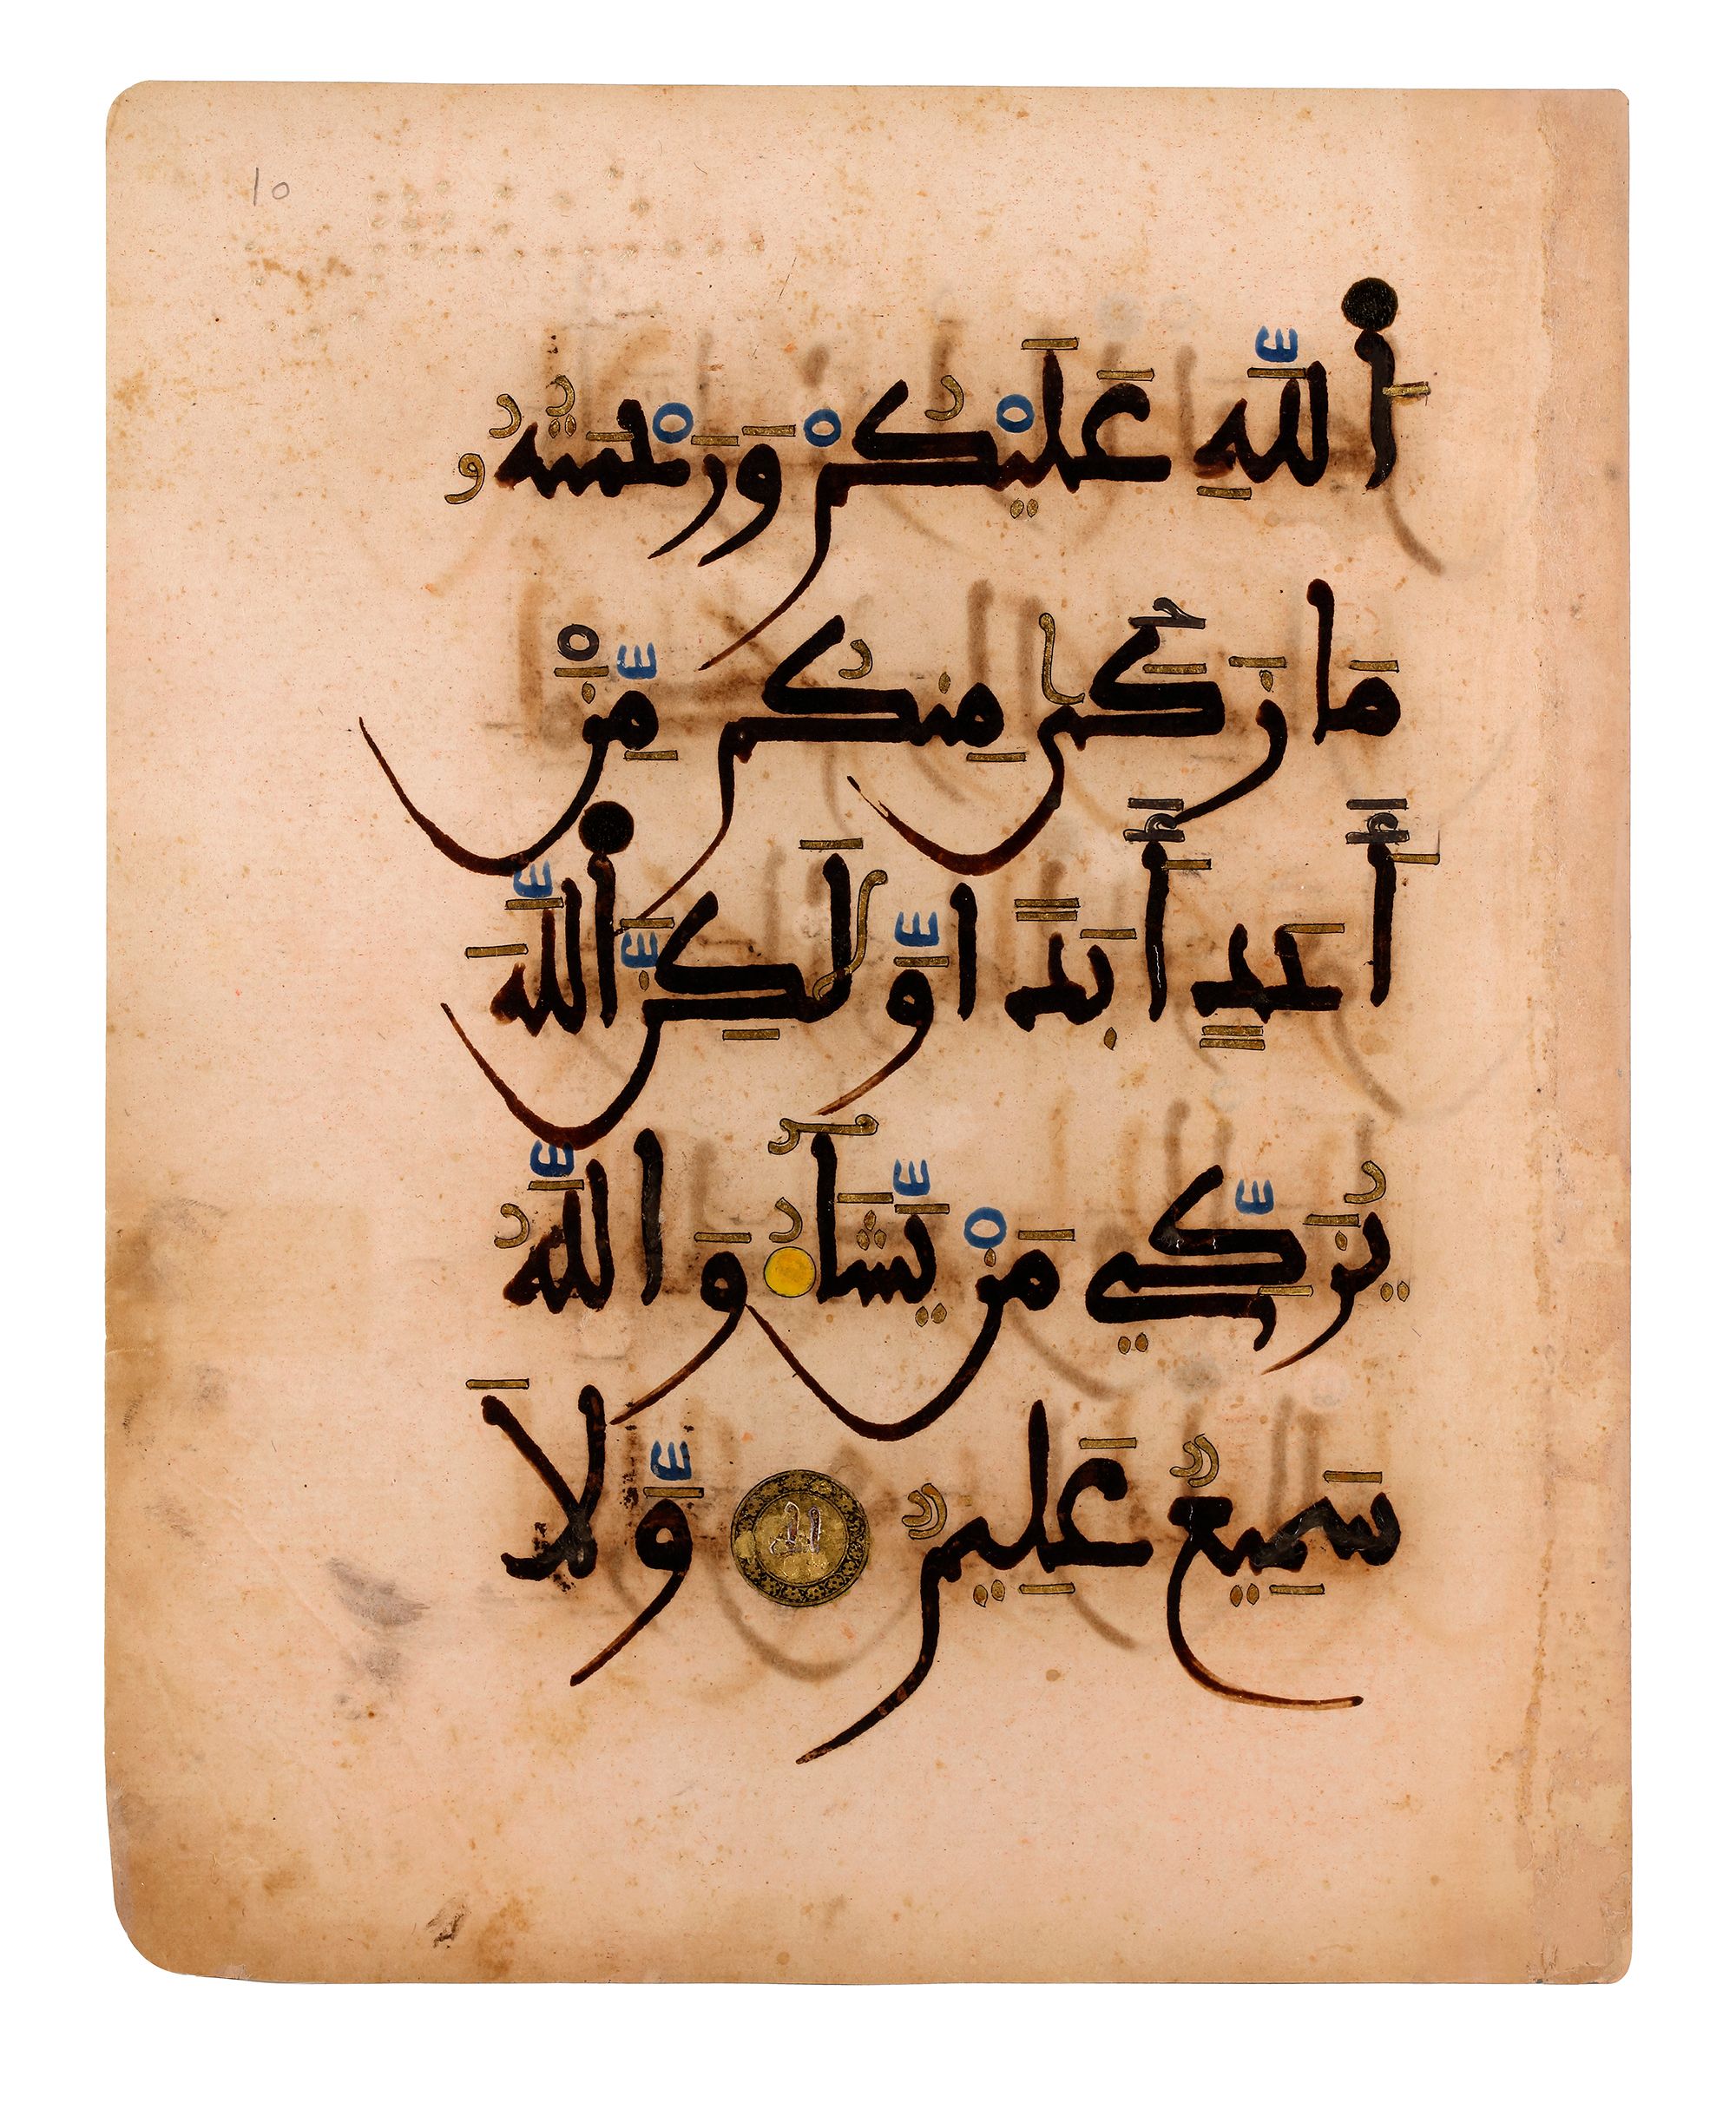 10
اَ۬للَّهِ عَلَيْكُمْ وَرَحْمَتُهُۥ
مَا زَكَىٰ مِنكُم مِّنْ
أَحَدٍ أَبَدًا وَّلَٰكِنَّ اَ۬للَّهَ
يُزَكِّي مَنْ يَّشَآءُ وَاللَّهُ
سَمِيعٌ عَلِيمٌ وَّلَا